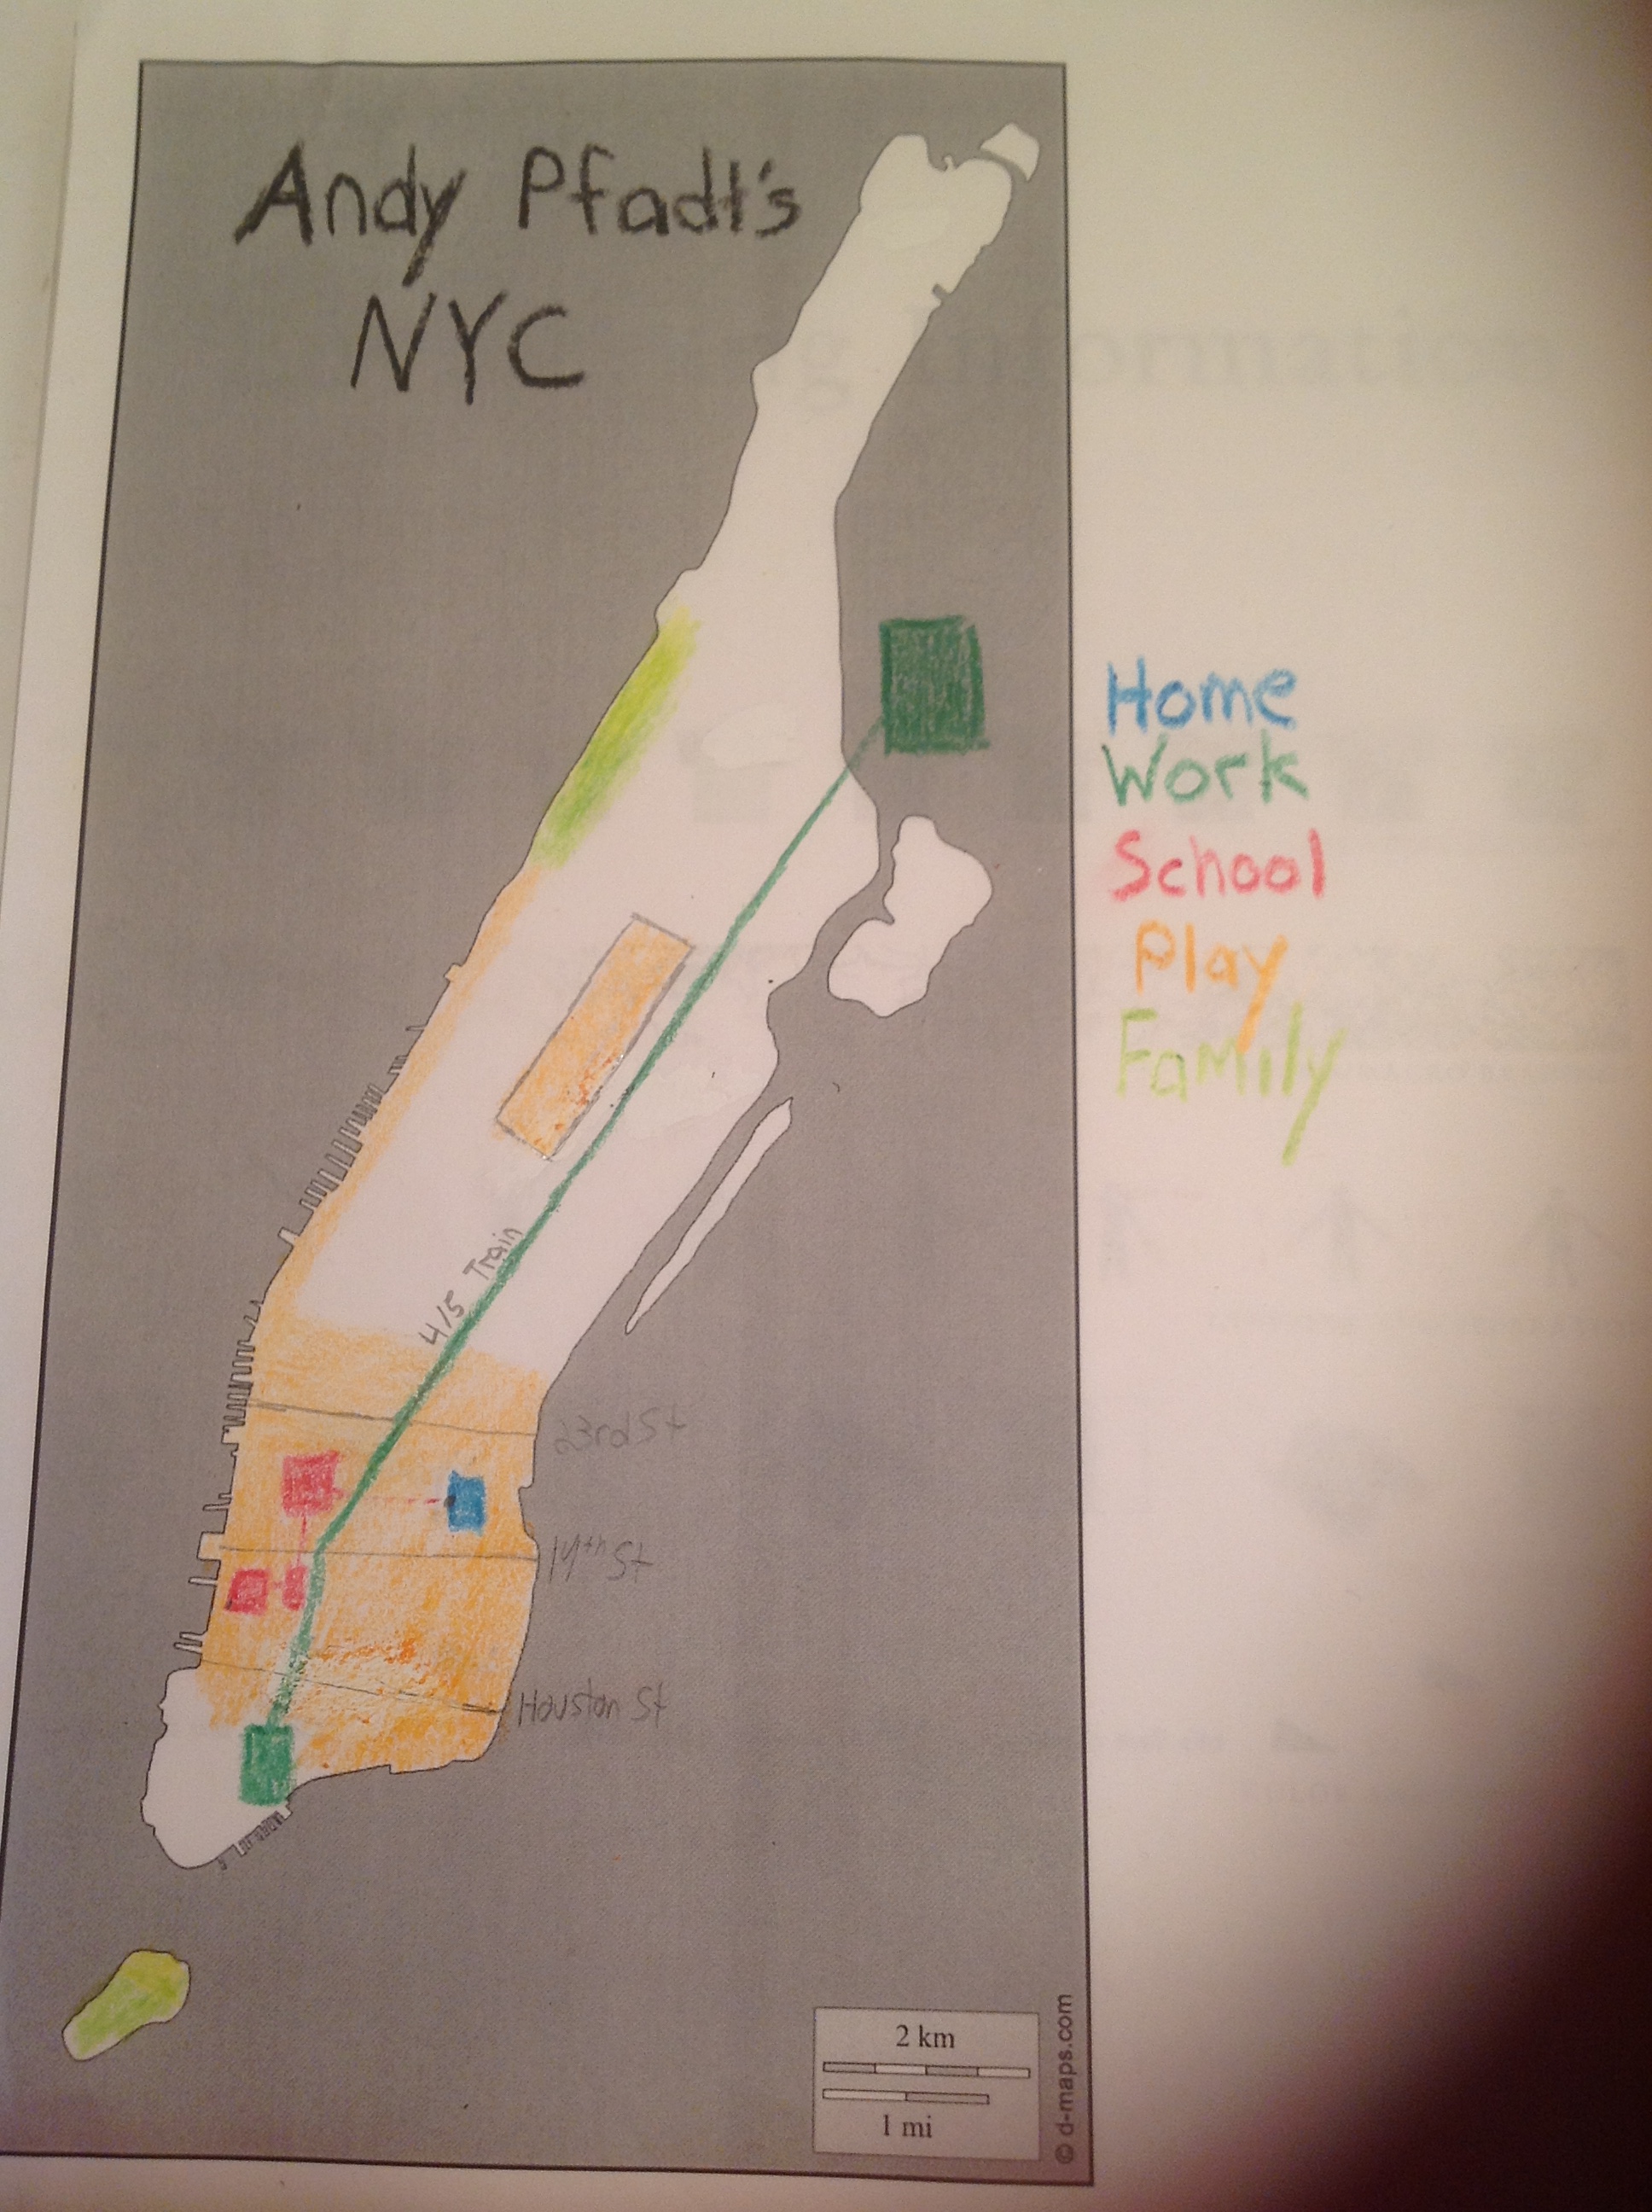 Andy Pfadt's
NYC
Home
Work
School
Play
Family
4/5 Train
23rd St
14th St
Houston St
2 km
1 mi
© d-maps.com